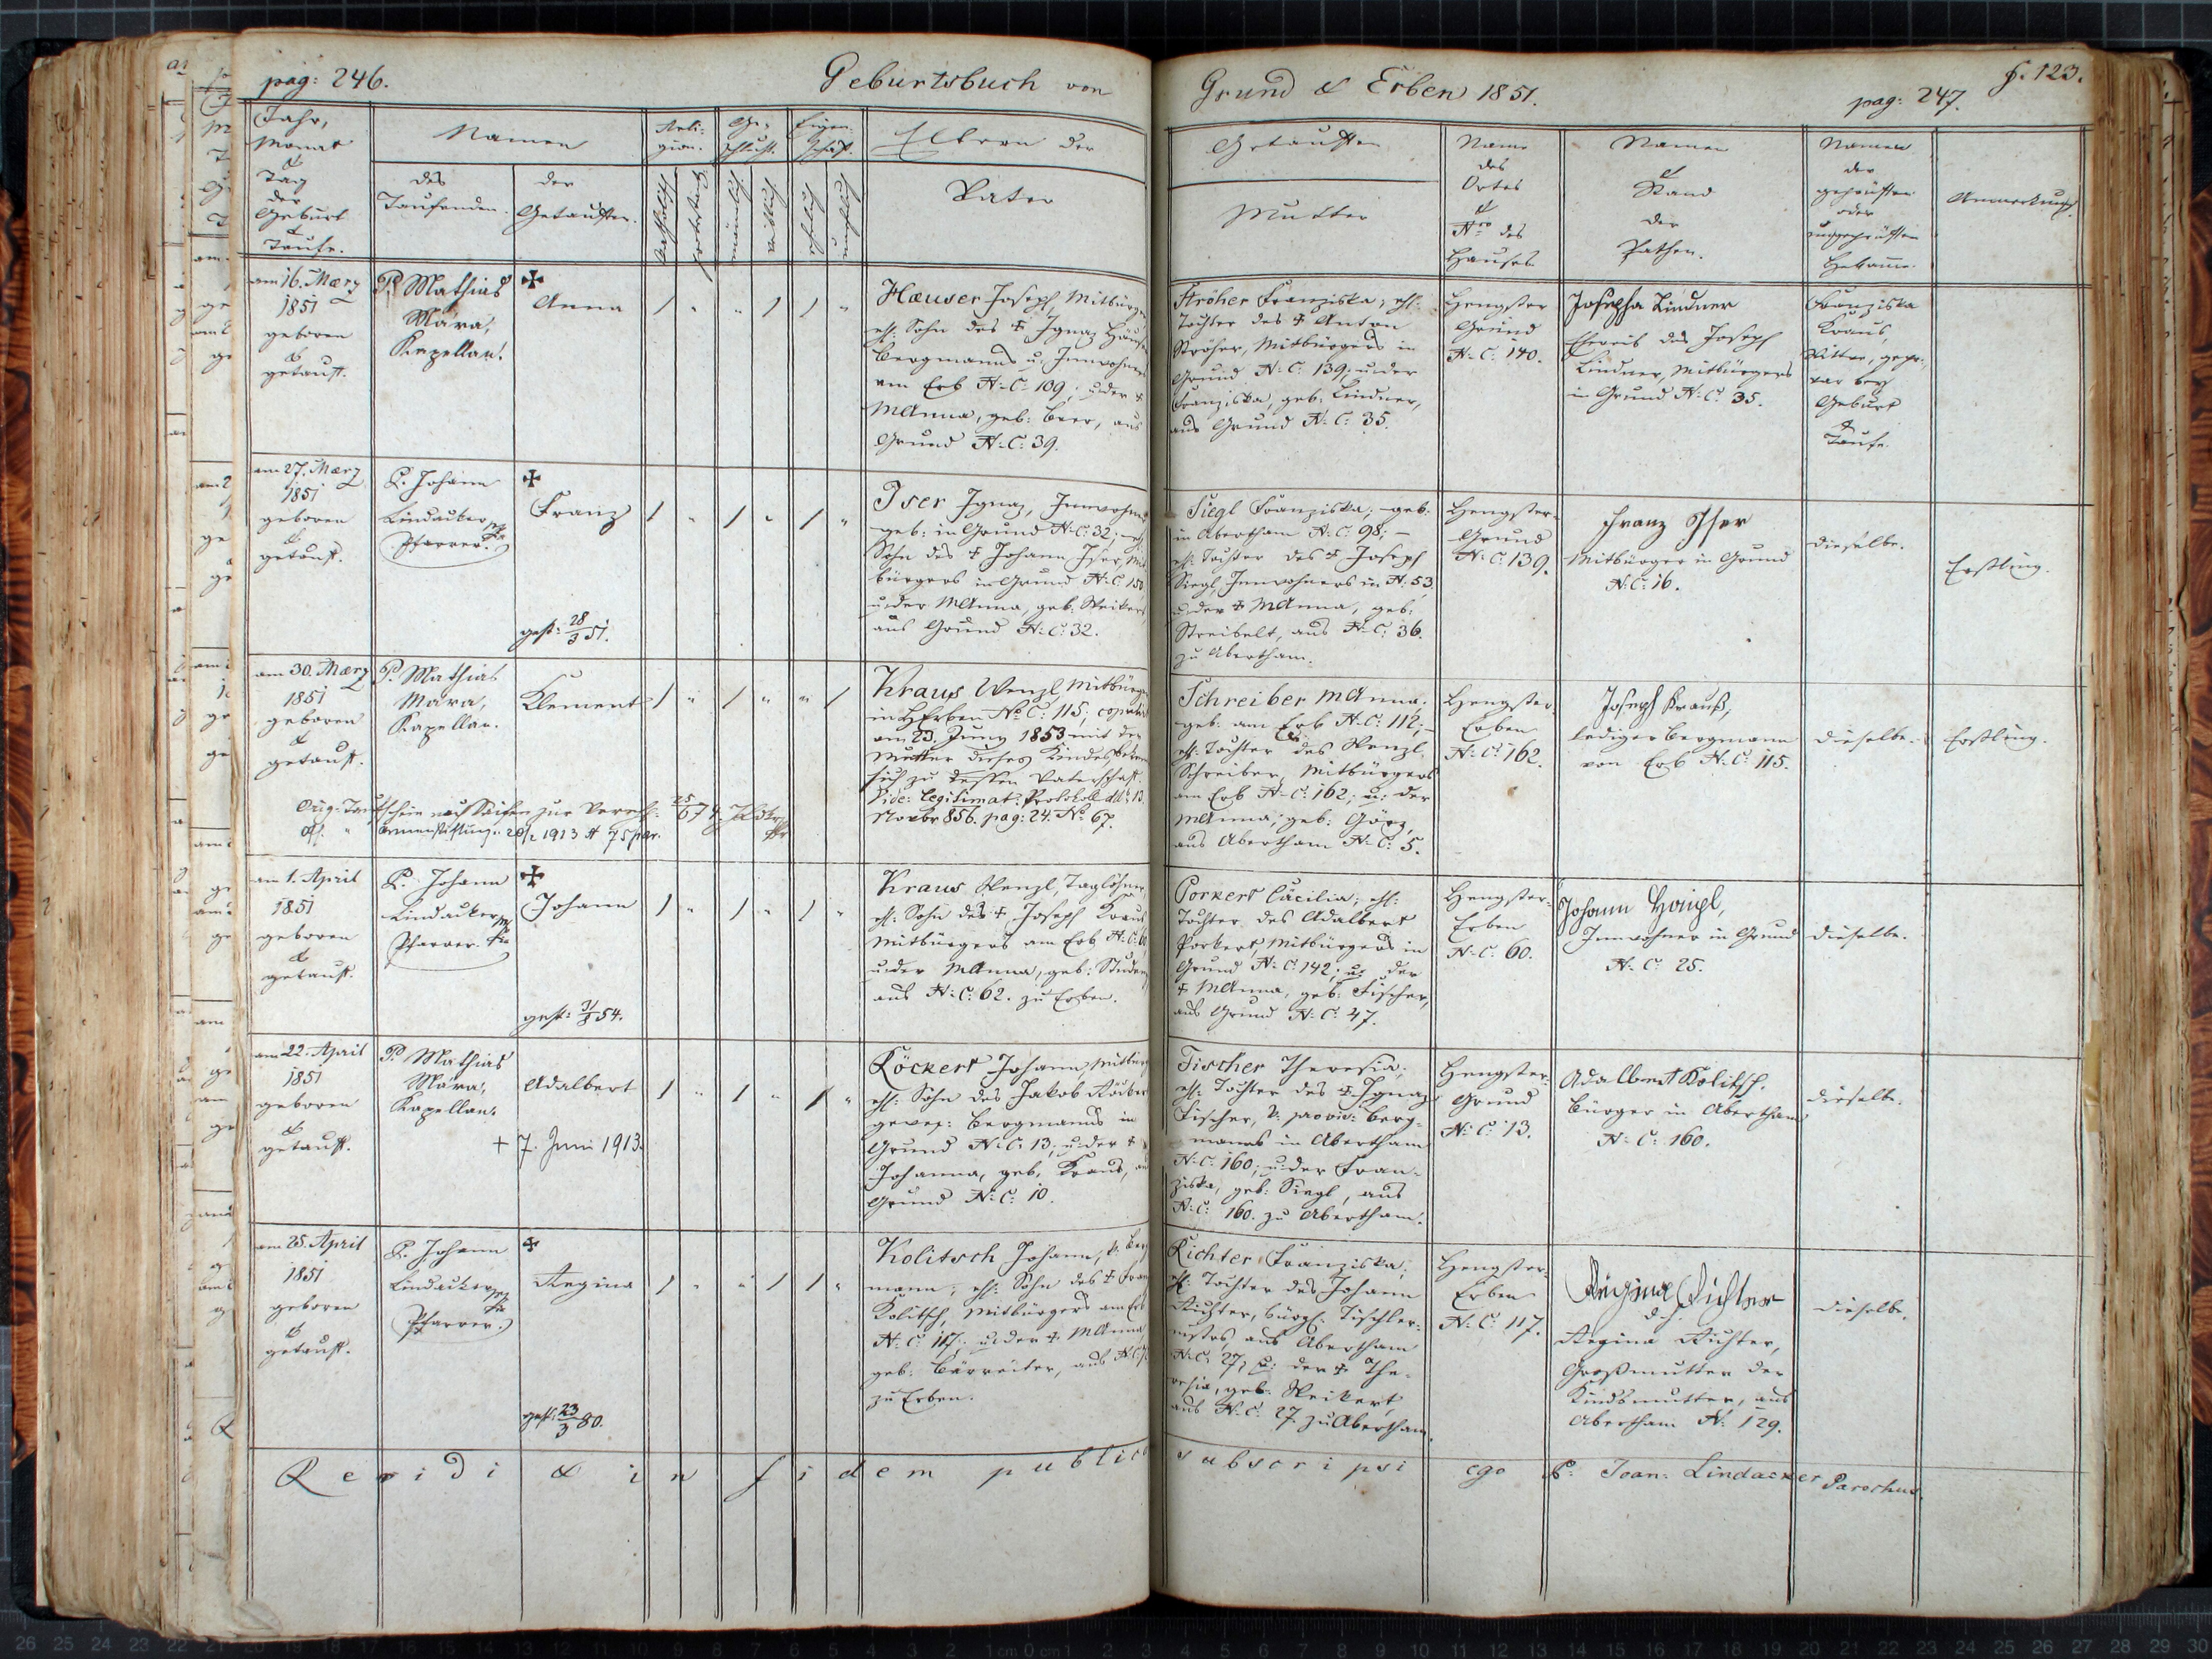 pag: 246.
Geburtsbuch von
Grund & Erben 1851.
pag: 247.
f. 123.
Jahr,
Monat
&
Tag
der
Geburt
&
Taufe.
Namen
des
Taufenden.
der
Getauften.
Reli-
gion.
Ge-
schlecht.
Eigen-
schaft.
katholisch
protestant.
männlich
weiblich
ehelich
unehelich
Eltern der
Vater
Getauften
Mutter
Name
des
Ortes
&
Nro des
Hauses
Namen
&
Stand
der
Pathen.
Namen
der
geprüften
oder
ungeprüften
Hebamme.
Anmerkung.
am 16. Mærz
1851
geboren
&
getauft.
P. Mathias
Mára,
Kapellan.
Anna
Hæuser Joseph, Mitbürger
eh: Sohn des ✠ Ignaz Häuser
Bergmanns u: Innwohners
am Erb N: C: 109; u: der ✠
MAnna, geb: Beer, aus
Grund N: C: 39.
Ströher Franziska; eh:
Tochter des ✠ Anton
Ströher, Mitbürgers in
Grund N: C: 139; u: der
Franziska, geb: Lindner,
aus Grund N: C: 35.
Hengster
Grund
N: C: 140.
Josepha Lindner
Eheweib des Joseph
Lindner, Mitbürgers
in Grund N: C: 35.
Franziska
Kraus,
war bey
Geburt
&
Taufe.
am 27. Mærz
1851
geboren
&
getauft.
P. Johann
Lindacker
Pfarrer.
Franz
gest: 28/3 51.
Iser Ignaz, Innwohner
geb: in Grund N: C: 32; eh:
Sohn des ✠ Johann Iser, Mit-
bürgers in Grund N: C: 150
u: der MAnna, geb: Weikert,
aus Grund N: C: 32.
Siegl Franziska; geb:
in Abertham N: C: 98; –
eh: Tochter des ✠ Joseph
Siegl, Innwohners in N: 53
u: der ✠ MAnna, geb:
Streibelt, aus N: C: 36.
zu Abertham.
Hengster-
Grund
N: C: 139.
Franz Iser
Mitbürger in Grund
N: C: 16.
dieselbe.
Erstling.
am 30. Mærz
1851
geboren
&
getauft.
P. Mathias
Mára,
Kapellan.
Klement
Kraus Wenzl, Mitbürger
in HErben No C: 115; copulirt
am 23. Juny 1853 mit der
Mutter dieses Kindes, bekennt
sich zu dessen Vaterschaft.
Vide: Legitimat: Protokoll ddt: 13.
Novbr 856. pag: 24. No 67.
1913
Schreiber MAnna,
geb: am Erb N: C: 112; –
eh: Tochter des Wenzl
Schreiber, Mitbürgers
am Erb N: C: 162; u: der
MAnna, geb: Görg,
aus Abertham N: C: 5.
Hengster-
Erben
N: C: 162.
Joseph Krauß,
lediger Bergmann
von Erb N: C: 115.
dieselbe.
Erstling.
am 1. April
1851
geboren
&
getauft.
P. Johann
Lindacker
Pfarrer.
Johann
gest: 31/3 54.
Kraus Wenzl, Taglöhner,
eh: Sohn des ✠ Joseph Kraus
Mitbürgers am Erb N: C: 60
u: der MAnna, geb:
aus N: C: 62. zu Erben.
Porkert Cäcilia; eh:
Tochter des Adalbert
Porkert, Mitbürgers in
Grund N: C: 142; u: der
✠ MAnna, geb: Fischer,
aus Grund N: C: 47.
Hengster-
Erben
N: C: 60.
Johann
Innwohner in Grund
N: C: 25.
dieselbe.
am 22. April
1851
geboren
&
getauft.
P. Mathias
Mára,
Kapellan.
Adalbert
+ 7. Juni 1913.
Röckert Johann, Mitbürger
eh: Sohn des Jakob Röckert
gewes: Bergmanns in
Grund N: C: 13; u: der ✠
Johanna, geb. Kraus, aus
Grund N: C: 10.
Fischer Theresia;
eh: Tochter des ✠ Ignaz
Fischer, k: provis: Berg-
manns in Abertham
N: C: 160; u: der Fran-
ziska, geb: Siegl, aus
N: C: 160. zu Abertham.
Hengster-
Grund
N: C: 13.
Adalbert Kolitsch.
Bürger in Abertham
N: C: 160.
dieselbe.
am 25. April
1851
geboren
&
getauft.
P. Johann
Lindacker
Pfarrer.
Regina
gest: 23/3 80.
Kolitsch Johann, k. Berg-
mann; eh: Sohn des ✠ Franz
Kolitsch, Mitbürgers am Erb
N: C: 117; u: der ✠ MAnna,
geb: Bärreiter, aus N: C:
zu Erben.
Richter Franziska,
eh: Tochter des Johann
Richter, bürgl: Tischler-
mstrs, aus Abertham
N: C: 27; u: der ✠ The-
resia, geb: Weikert,
aus N: C: 27. zu Abertham.
Hengster-
Erben
N: C: 117.
Regina Richter
d. i.
Regina Richter,
Großmutter der
Kindsmutter, aus
Abertham N: 129.
dieselbe.
Revidi & in fidem publicam subscripsi ego P: Joan: Lindacker Parochus.